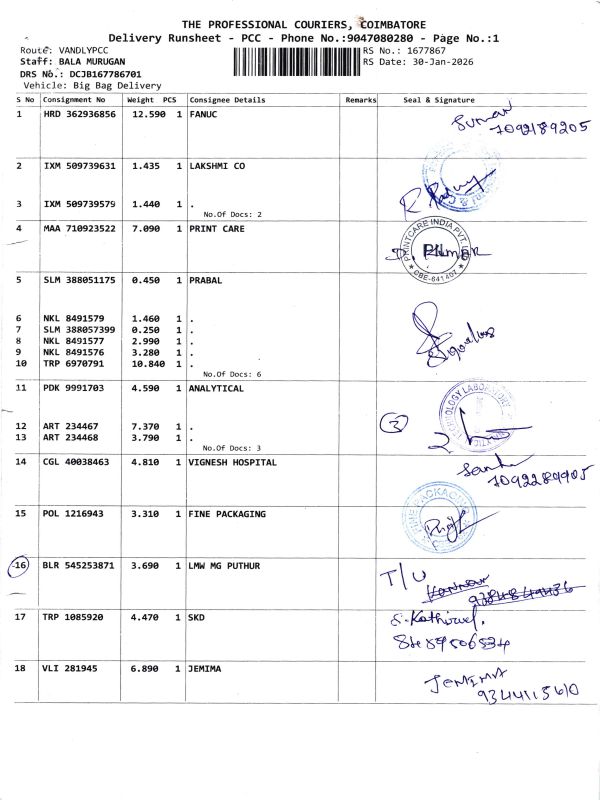 THE PROFESSIONAL COURIERS, COIMBATORE
Delivery Runsheet - PCC - Phone No.:9047080280 - Page No.:1
Route: VANDLYPCC
RS No.: 1677867
Staff: BALA MURUGAN
RS Date: 30-Jan-2026
DRS No.: DCJB167786701
Vehicle: Big Bag Delivery
S No Consignment No Weight PCS Consignee Details Remarks Seal & Signature
1 HRD 362936856 12.590 1 FANUC
Suman
7092189205
2 IXM 509739631 1.435 1 LAKSHMI CO
3 IXM 509739579 1.440 1 .
No.Of Docs: 2
4 MAA 710923522 7.090 1 PRINT CARE
PRINTCARE INDIA PVT.
CBE-641407
5 SLM 388051175 0.450 1 PRABAL
6 NKL 8491579 1.460 1 .
7 SLM 388057399 0.250 1 .
8 NKL 8491577 2.990 1 .
9 NKL 8491576 3.280 1 .
10 TRP 6970791 10.840 1 .
No.Of Docs: 6
11 PDK 9991703 4.590 1 ANALYTICAL
TECHNOLOGY LABORATORY
12 ART 234467 7.370 1 .
13 ART 234468 3.790 1 .
No.Of Docs: 3
14 CGL 40038463 4.810 1 VIGNESH HOSPITAL
7092289905
15 POL 1216943 3.310 1 FINE PACKAGING
FINE PACKAGING
16 BLR 545253871 3.690 1 LMW MG PUTHUR
T/U
17 TRP 1085920 4.470 1 SKD
S. Kathirvel.
18 VLI 281945 6.890 1 JEMIMA
JEMIMA
9344115610